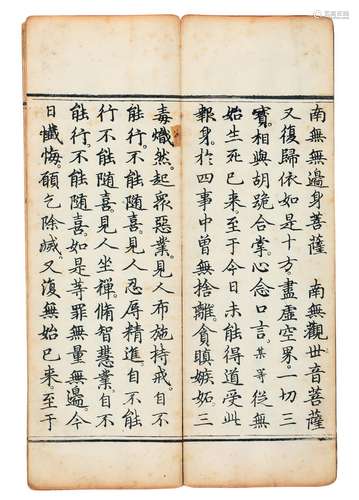 南無無邊身菩薩　南無觀世音菩薩
又復歸依如是十方。盡虛空界。一切三
寶。相與胡跪合掌。心念口言。某等從無
始生死已來。至于今日。未能得道。受此
報身。於四事中。曾無捨離。貪瞋嫉妬。三
毒熾然。起眾惡業。見人布施持戒。自不
能行。不能隨喜。見人忍辱精進。自不能
行。不能隨喜。見人坐禪。脩智慧業。自不
能行。不能隨喜。如是等罪。無量無邊。今
日懺悔。願乞除滅。又復無始已來。至于